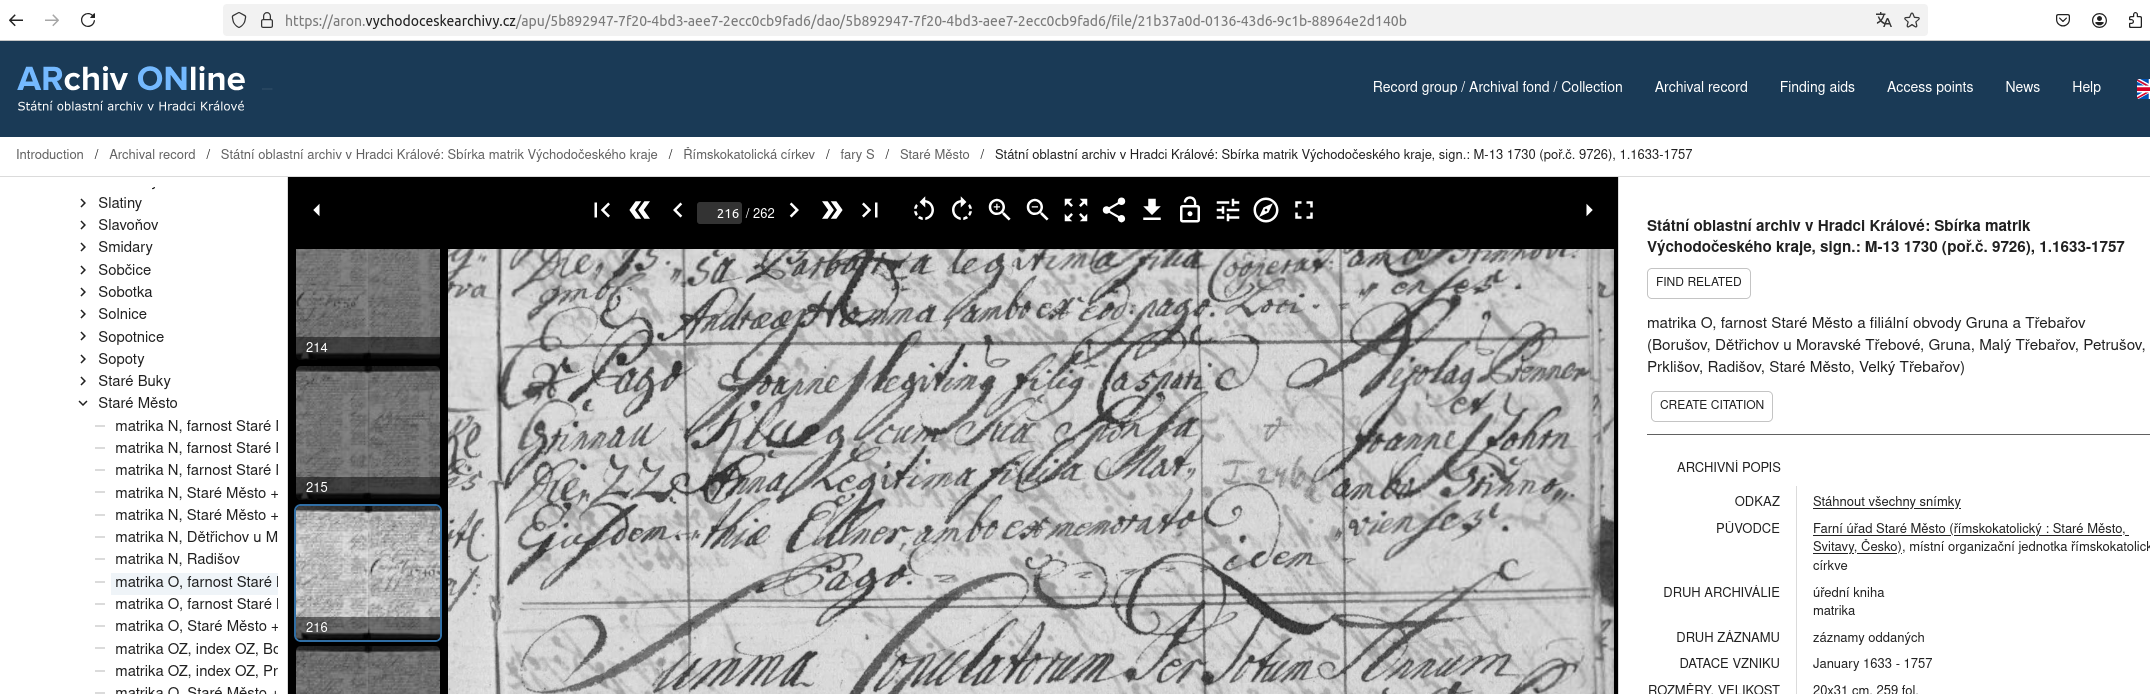 https://aron.vychodoceskearchivy.cz/apu/5b892947-7f20-4bd3-aee7-2ecc0cb9fad6/dao/5b892947-7f20-4bd3-aee7-2ecc0cb9fad6/file/21b37a0d-0136-43d6-9c1b-88964e2d140b
ARchiv ONline
Státní oblastní archiv v Hradci Králové
Record group / Archival fond / Collection
Archival record
Finding aids
Access points
News
Help
Introduction / Archival record / Státní oblastní archiv v Hradci Králové: Sbírka matrik Východočeského kraje / Římskokatolická církev / fary S / Staré Město / Státní oblastní archiv v Hradci Králové: Sbírka matrik Východočeského kraje, sign.: M-13 1730 (poř.č. 9726), 1.1633-1757
Slatiny
Slavoňov
Smidary
Sobčice
Sobotka
Solnice
Sopotnice
Sopoty
Staré Buky
Staré Město
matrika N, farnost Staré
matrika N, farnost Staré
matrika N, farnost Staré
matrika N, Staré Město +
matrika N, Staré Město +
matrika N, Dětřichov u M
matrika N, Radišov
matrika O, farnost Staré
matrika O, farnost Staré
matrika O, Staré Město +
matrika OZ, index OZ, Bo
matrika OZ, index OZ, Pr
matrika O, Staré Město
216 / 262
214
215
216
sa Barbara legitima filia
Andreæ Homma, ambo ex eod. pago. Loci
Ex Pago Joannes legitimus filius Caspari Nicolaus Brenner
et
Grinnau Klug cum sua Sponsa Joannes John
Die 22 Anna Legitima filia Mat, ambo Grinno,
Ejusdem thiæ Ellner, ambo ex memorato vienses.
Pago. idem
Summa Copulatorum Per totum Annum
Státní oblastní archiv v Hradci Králové: Sbírka matrik
Východočeského kraje, sign.: M-13 1730 (poř.č. 9726), 1.1633-1757
FIND RELATED
matrika O, farnost Staré Město a filiální obvody Gruna a Třebařov
(Borušov, Dětřichov u Moravské Třebové, Gruna, Malý Třebařov, Petrušov,
Prklišov, Radišov, Staré Město, Velký Třebařov)
CREATE CITATION
ARCHIVNÍ POPIS
ODKAZ Stáhnout všechny snímky
PŮVODCE Farní úřad Staré Město (římskokatolický : Staré Město,
Svitavy, Česko), místní organizační jednotka římskokatolick
církve
DRUH ARCHIVÁLIE úřední kniha
matrika
DRUH ZÁZNAMU záznamy oddaných
DATACE VZNIKU January 1633 - 1757
ROZMĚRY, VELIKOST 20x31 cm, 259 fol.